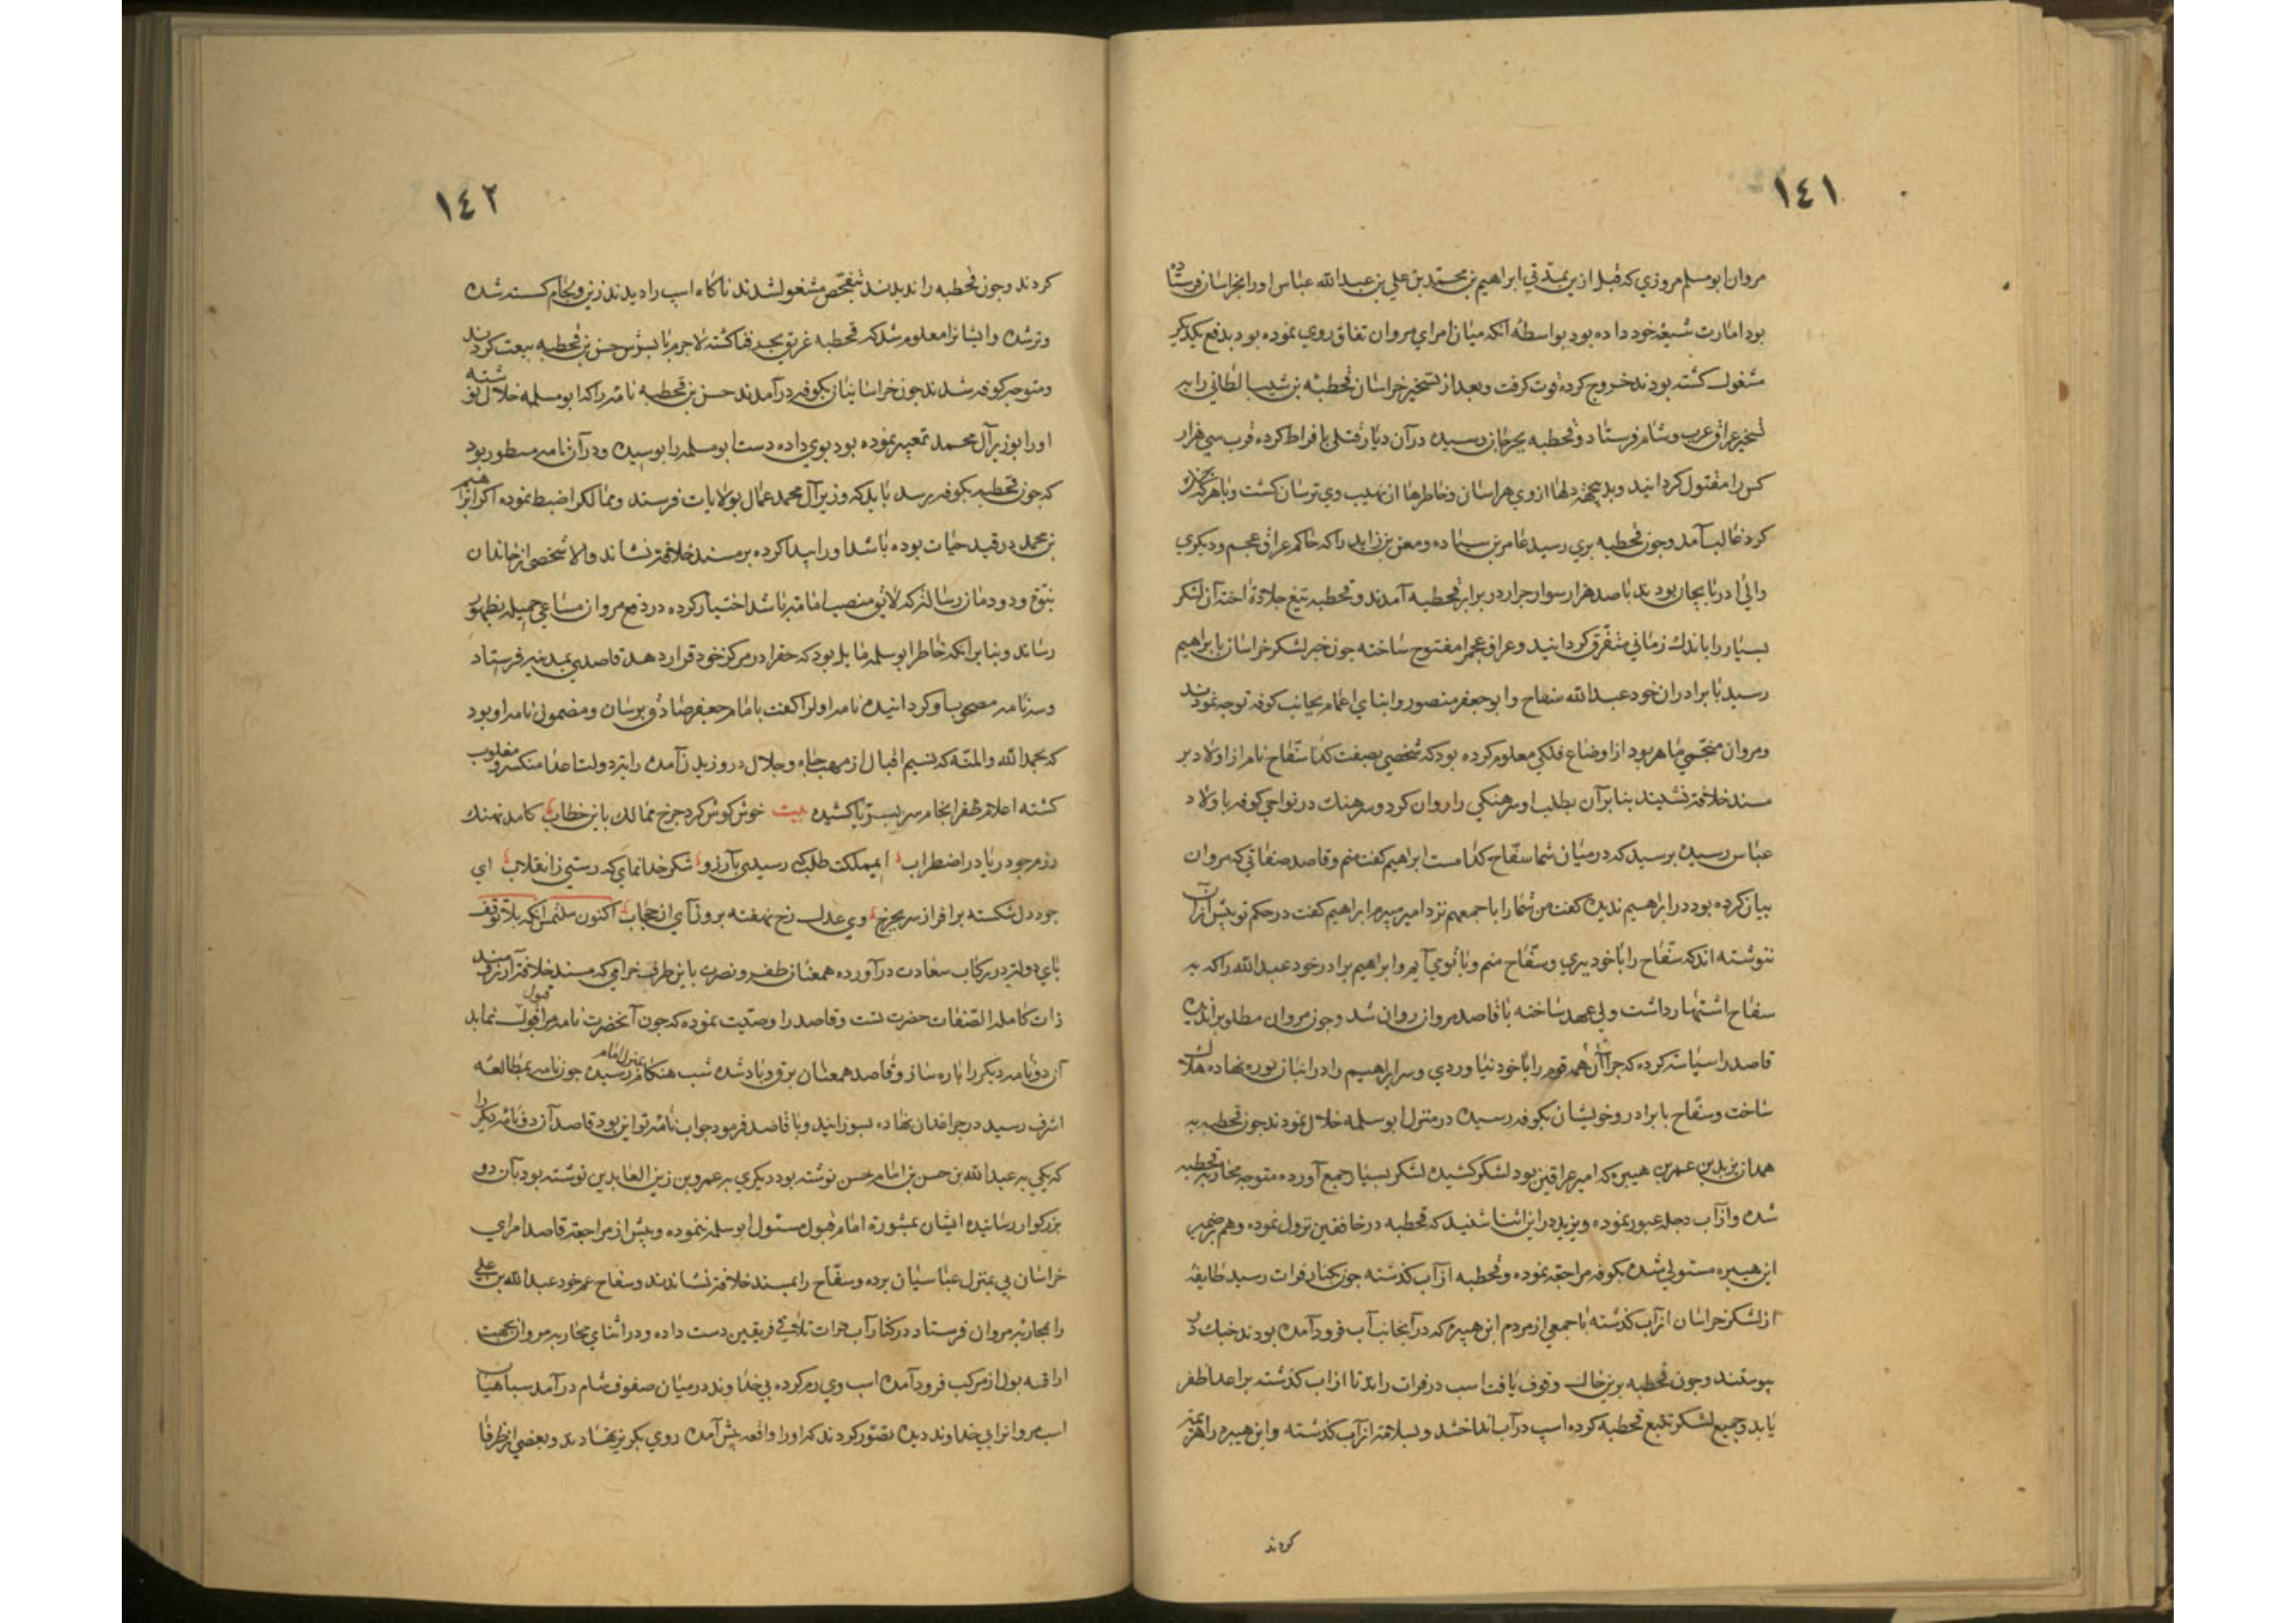 ١٤١
مروان ابومسلم مروزي كه قبل از ين بمدتي ابراهيم بن محمد بن علي بن عبدالله عباس اورا بخراسان فرستاده
بود امارت شيعه خود داده بود بواسطه آنكه ميان امراي مروان نفاق روي نموده بود بدفع يكديكر
مشغول كشته بودند خروج كرده قوت كرفت وبعد از تسخير خراسان قحطبه بن شبيب الطائي را به
تسخير عراق عرب وشام فرستاد وقحطبه بجرجان رسيده درآن ديار قتلي بافراط كرده قرب سي هزار
كس را مقتول كردانيد وبدينجهة دلها ازوي هراسان وخاطرها از نهيب وي ترسان كشت وباهر كه
كرد غالب آمد وچون قحطبه بري رسيد عامر بن ومعن بن زايده را كه حاكم عراق عجم وديكري
والي ادربايجان بودند با صد هزار سوار جرار در برابر قحطبه آمدند وقحطبه تيغ جلادة آخته آن لشكر
بسيار را باندك زماني متفرق كردانيد وعراق عجم را مفتوح ساخته چون خبر لشكر خراسان بابراهيم
رسيد با برادران خود عبدالله سفاح وابوجعفر منصور وابناي اعمام بجانب كوفه توجه نمودند
ومروان منجمي ماهر بود از اوضاع فلكي معلوم كرده بود كه شخصي بصفت كذا سفاح نام از اولاد بر
مسند خلافة نشيند بنا برآن بطلب او سرهنكي را روان كرد وسرهنك در نواحي كوفه باولاد
عباس رسيده پرسيد كه در ميان شما سفاح كدامست ابراهيم كفت منم وقاصد صفاتي كه مروان
بيان كرده بود در ابراهيم نديده كفت من شمارا باجمعهم نزد امير ميبرم ابراهيم كفت در حكم تو بيش ازآن
ننوشته اند كه سفاح را با خود بيري وسفاح منم وبا تو مي آيم وابراهيم برادر خود عبدالله را كه به
سفاح اشتهار داشت ولي عهد ساخته با قاصد مروان روان شد وچون مروان مطلوب را نديده
قاصد را سياسة كرده كه چرا آن همه قوم را با خود نياوردي وسر ابراهيم را در انبان نوره نهاده هلاك
ساخت وسفاح با برادر وخويشان بكوفه رسيده در منزل ابوسلمه خلال نمودند چون قحطبه به
همدان يزيد بن عمر بن هبيره كه امير عراقين بود لشكر كشيده لشكر بسيار جمع آورده متوجه محاربه قحطبه
شده وازآب دجله عبور نموده ويزيد دراين اثنا شنيد كه قحطبه در خانقين نزول نموده وهم بر ضمير
ابن هبيره مستولي شده بكوفه مراجعة نموده وقحطبه ازآب كذشته چون بكنار فرات رسيد طايفه
از لشكر خراسان ازآب كذشته با جمعي از مردم ابن هبيره كه درآنجانب آب فرود آمده بودند جنك در
پيوستند وچون قحطبه برين حال وقوف يافت اسب در فرات راند تا از آب كذشته بر اعدا ظفر
يابد وجميع لشكر تتبع قحطبه كرده اسب درآب انداختند وبسلامة ازآب كذشته وابن هبيره را هزيمة
كردند
١٤٢
كردند وچون قحطبه را نديدند بتفحص مشغول شدند ناكاه اسب را ديدند زين ولجام كسسته شده
وترشده وايشانرا معلوم شد كه قحطبه غريق بحر فنا كشته لاجرم با پسرش حسن بن قحطبه بيعت كردند
ومتوجه كوفه شدند چون خراسانيان بكوفه درآمدند حسن بن قحطبه نامه را كه ابومسلم خلال نوشته
اورا بوزير آل محمد تعبير نموده بود بوي داده دست ابوسلمه را بوسيده ودرآن نامه مسطور بود
كه چون قحطبه بكوفه رسد بايد كه وزير آل محمد عمال بولايات فرستد وممالك را ضبط نموده اكر ابراهيم
بن محمد در قيد حيات بوده باشد اورا پيدا كرده بر مسند خلافة نشاند والا شخصي از خاندان
نبوة ودودمان رسالة كه لايق منصب امامة باشد اختيار كرده در دفع مروان مساعي جميله بظهور
رساند وبنا برآنكه خاطر ابوسلمه مايل بود كه حق را در مركز خود قرار دهد قاصدي بمدينه فرستاد
وسه نامه مصحوب او كردانيده نامه اول را كفت بامام جعفر صادق برسان ومضمون نامه او بود
كه بحمد الله والمنه كه نسيم اقبال از مهب جاه وجلال در وزيدن آمده رايت دولت اعدا منكسر ومغلوب
كشته اعلام ظفر انجام سر بسوي ثريا كشيده بيت خوش كوش كرد چرخ ممالك باين خطاب كامد نهنك
رزم چو دريا در اضطراب ايمملكت طلب كه رسيدي بآرزو شكر خدا نماي كه رستي ز انقلاب اي
چود دل شكسته برافراز سر بچرخ وي عدل رخ نهفته برون آي از حجاب اكنون ملتمس آنكه بلا توقف
پاي دولت در ركاب سعادت درآورده همعنان ظفر ونصرت باين طرف خرامي كه مسند خلافة آرزومند
ذات كامله الصفات حضرت تست وقاصد را وصيت نموده كه چون آنحضرت نامه مرا قبول نمايد
آن دو نامه ديكر را پاره ساز وقاصد همعنان برق وباد شده شب هنكام بمنزل امام رسيده چون نامه بمطالعه
اشرف رسيد در چراغدان نهاده بسوزانيد وبا قاصد فرمود جواب نامه تو اين بود قاصد آن دو نامه ديكر را
كه يكي به عبدالله بن حسن بن امام حسن نوشته بود ديكري به عمرو بن زين العابدين نوشته بود بآن دو
بزركوار رسانيده ايشان بمشورة امام قبول مسئول ابوسلمه ننموده وپيش از مراجعة قاصد امراي
خراسان پي بمنزل عباسيان برده وسفاح را بمسند خلافة نشاندند وسفاح عم خود عبدالله بن علي
را بمحاربه مروان فرستاد در كنار آب تلاقي فريقين دست داده ودر اثناي محاربه مروان بجهت
اراقه بول از مركب فرود آمده اسب وي رم كرده بي خداوند در ميان صفوف شام درآمد سپاهيان
اسب مروانرا بي خداوند ديده تصور كردند كه اورا واقعه پيش آمده روي بكريز نهادند وبعضي از ظرفا